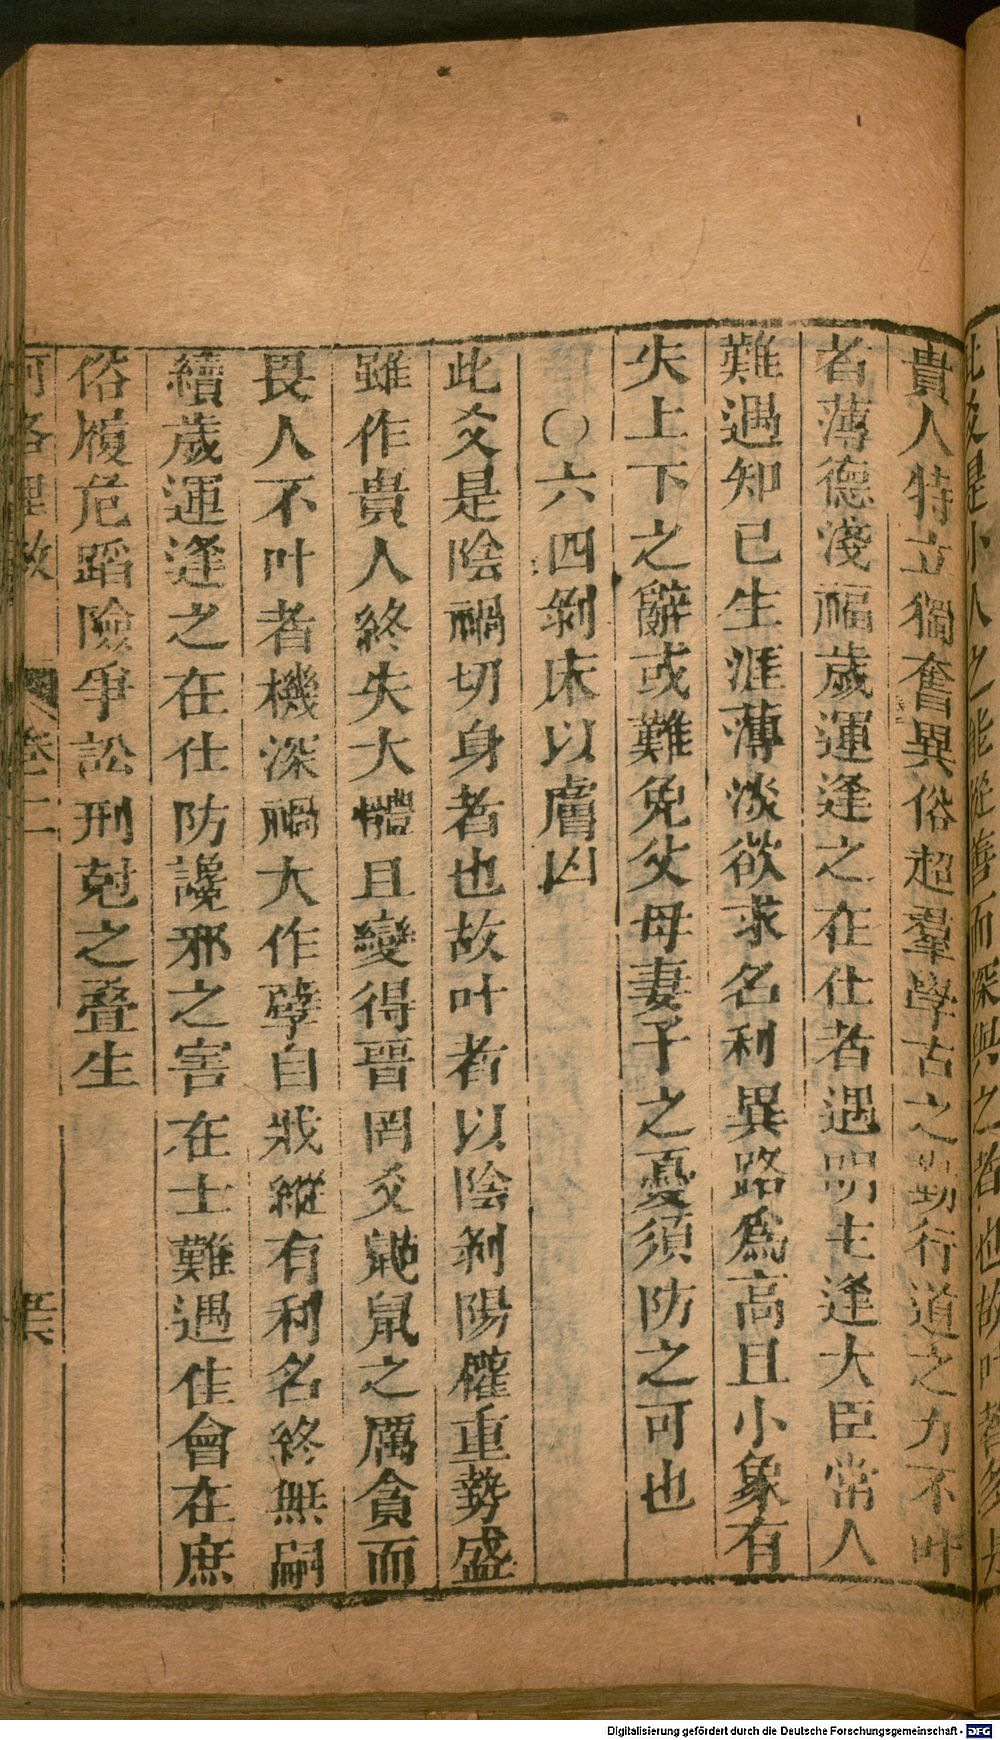 此爻是小人之能從善而深與之者也故叶者多
貴人特立獨奮異俗超羣學古之勤行道之力不叶
者薄德淺福歲運逢之在仕者遇明主逢大臣常人
難遇知己生涯薄淡欲求名利異路爲高且小象有
失上下之辭或難免父母妻子之憂須防之可也
〇六四剝床以膚凶
此爻是陰禍切身者也故叶者以陰剝陽權重勢盛
雖作貴人終失大體且變得晉罔爻鼫鼠之厲貪而
畏人不叶者機深禍大作孽自戕縱有利名終無嗣
續歲運逢之在仕防讒邪之害在士難遇佳會在庶
俗履危蹈險爭訟刑尅之叠生
河洛理數 卷二
Digitalisierung gefördert durch die Deutsche Forschungsgemeinschaft - DFG